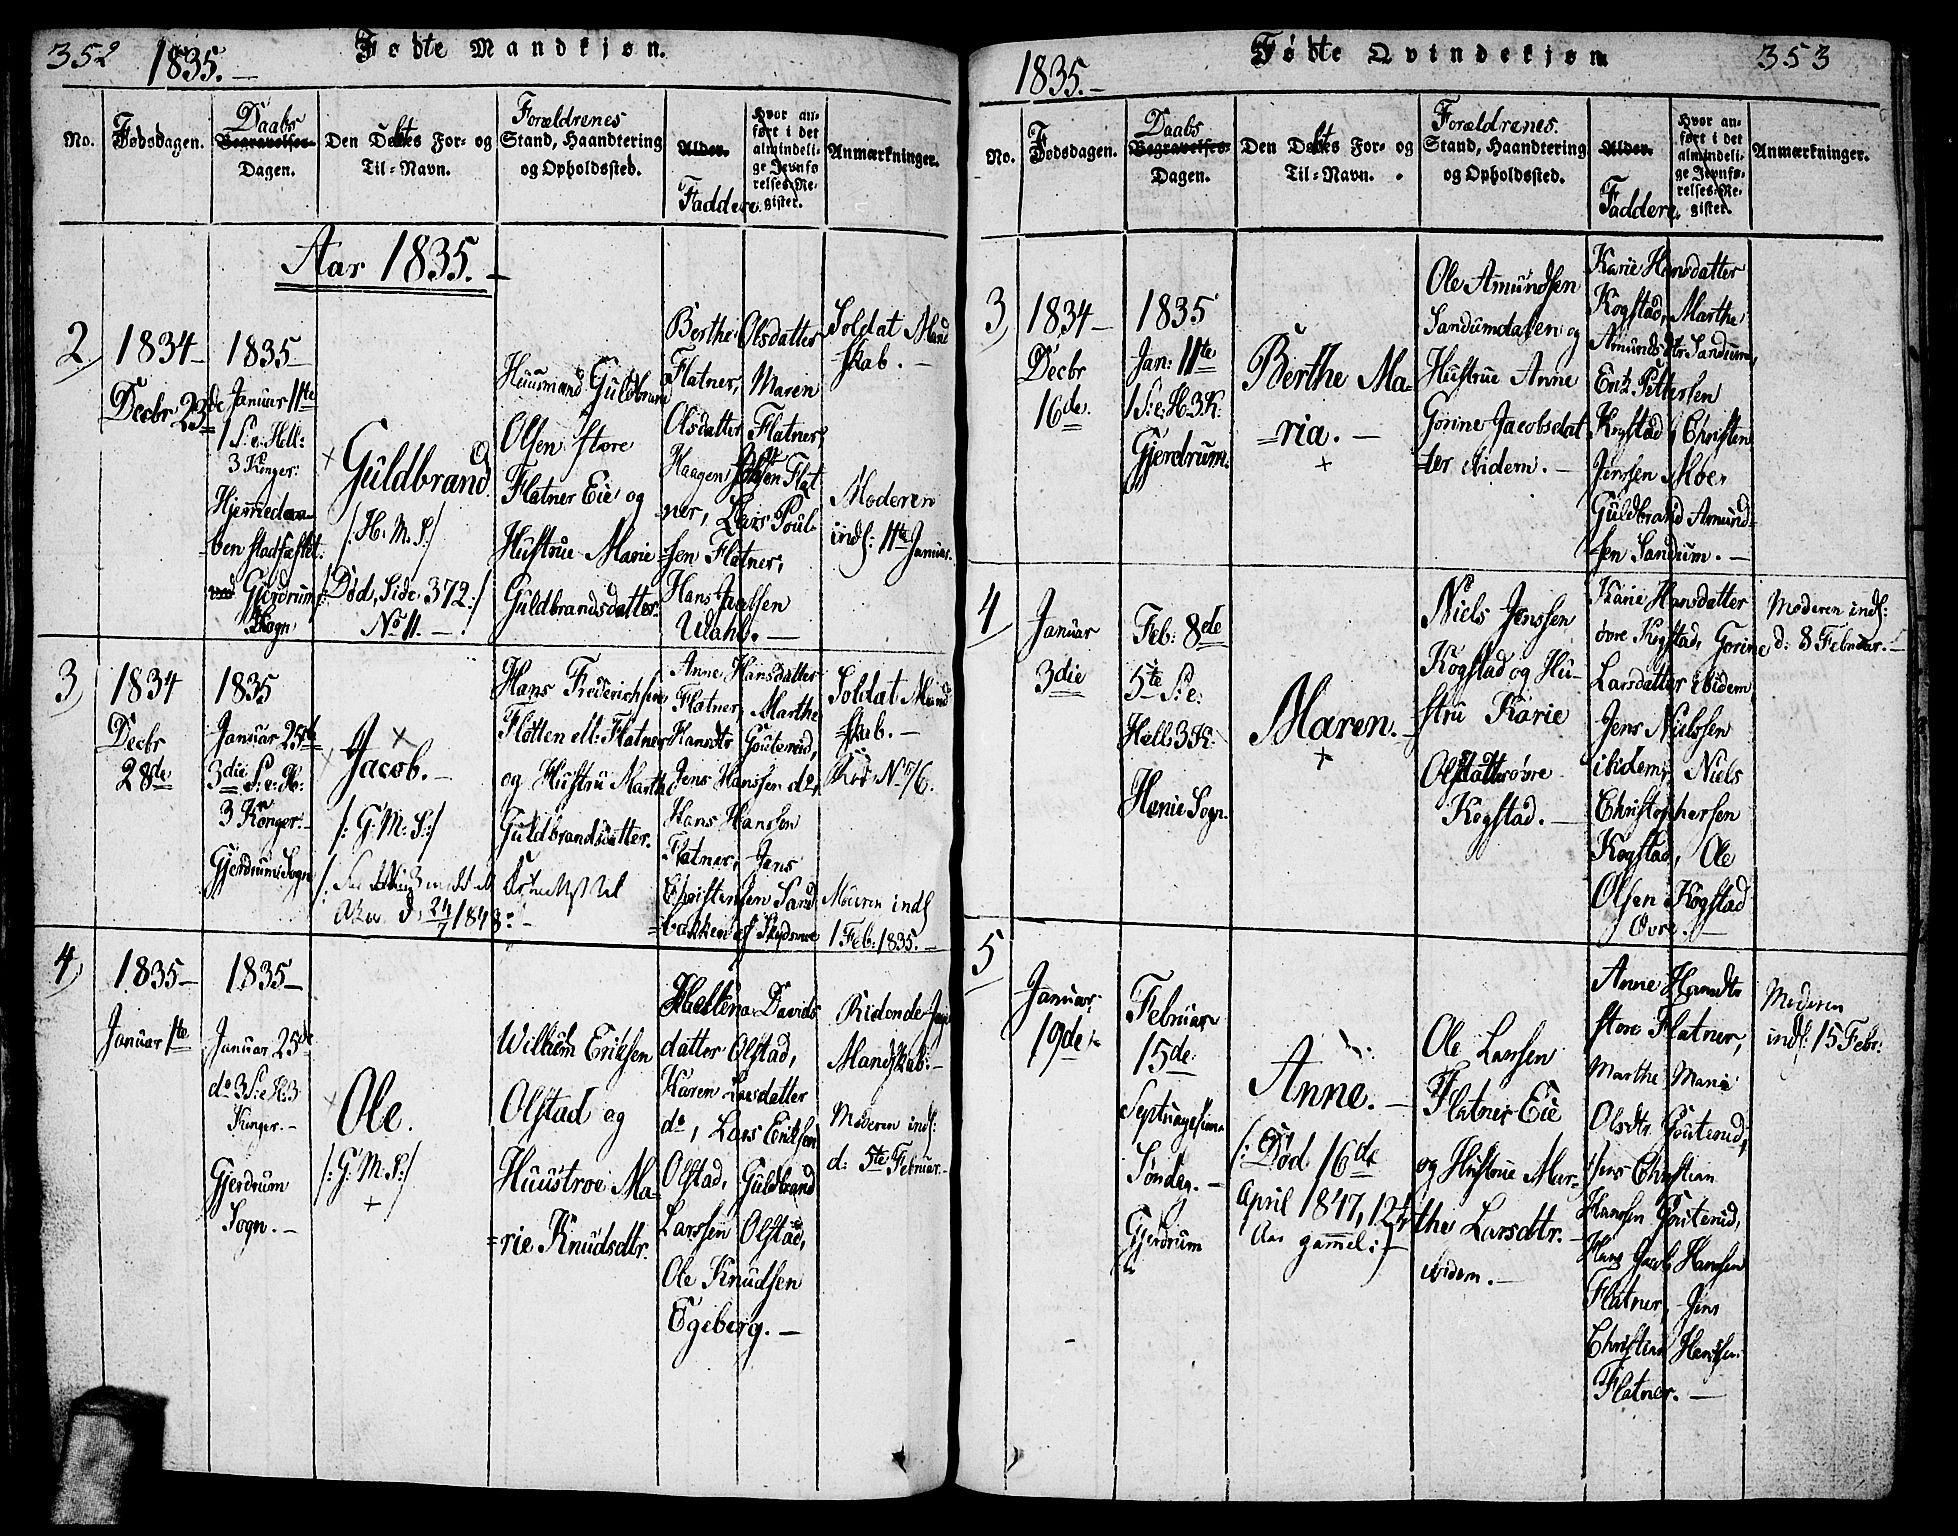 352 1835.— Fødte Mandkjøn.
No.
Fødsdagen.
Daabs
Begravelses-
Dagen.
Den Døbtes For- og
Til-Navn.
Forældrenes
Stand, Haandtering
og Opholdssted.
Alder.
Faddere.
Hvor an-
ført i det
almindeli-
ge Jevnfø-
relses-Re-
gister.
Anmærkninger.
Aar 1835.—
2)
1834—
Decbr 23de
1835—
Januar 11te
1 S: e: Hell:
3 Konger:
Hjemmedaa-
ben stadfæstet
Gjerdrums
Sogn
Guldbrand
/: H. M. S:/
/: Død, Side 372:/
No 11.—
Huusmand Guldbrand
Olsen store
Flatner Eie og
Hustrue Marie
Guldbrandsdatter.
Berthe Olsdatter
Flatner, Maren
Olsdatter Flatner,
Haagen Flat
ner, Lars Poul-
sen Flatner,
Hans
Soldat Mand
skab.—
Moderen
indl: 11te Januar.
3)
1834
Decbr
28de
1835
Januar 25de
3die S: e: H:
3 Konger.—
Gjerdrum Sogn
Jacob.—
/: G: M: S:/
d. 24/7 1843:
Hans Frederichsen
Fløtten ell: Flatner
og Hustru Marthe
Guldbrandsdatter.
Anne Hansdatter
Flatner, Marthe
Hansdtr Gouterud,
Jens Hanssen do,
Hans Hanssen
Flatner, Jens
Christensen Sand
bakken af
Soldat Mand
skab.—
Moderen indl
1 Feb: 1835.—
4)
1835—
Januar 1te
1835—
Januar 25de
do 3 S: e H: 3
Konger.—
Gjerdrum
Sogn.—
Ole.
/: G: M: S:/
Wilhelm Eriksen
Olstad og
Huustroe Ma-
rie Knudsdtr.
Hellena Davids
datter Olstad,
Karen Larsdatter
do, Lars Eriksen
Olstad, Guldbrand
Larssen Olstad,
Ole Knudsen
Egeberg.—
Ridende Jæger
Mandskab.—
Moderen indl:
d: 5te Februar.—
1835.— Fødte Qvindekjøn 353
No.
Fødsdagen.
Daabs
Begravelses-
Dagen.
Den Døbtes For- og
Til-Navn.
Forældrenes.
Stand, Haandtering
og Opholdssted.
Alder.
Faddere.
Hvor an-
ført i det
almindeli-
ge Jevnfø-
relses-Re-
gister.
Anmærkninger.
3)
1834—
Decbr
16de.
1835
Jan: 11te
1 S: e: H. 3 K:
Gjerdrum.
Berthe Ma-
ria.—
Ole Amundsen
Sandumdalen og
Hustrue Anne
Gorine Jacobsdat
ter ibidem.—
Karie Hansdatter
Kogstad, Marthe
Amundsdtr Sandum,
Erik Pettersen
Kogstad, Christen
Jenssen Moe,
Guldbrand Amund-
sen Sandum.—
4)
Januar
3die
Feb: 8de
5te S: e:
Hell: 3 K:
Hænie Sogn
Maren.—
Niels Jenssen
Kogstad og Hu-
stru Karie
Olsdatter øvre
Kogstad.—
Karie Hansdatter
øvre Kogstad, Gorine
Larsdatter ibidem
Jens Nielssen
ibidem, Niels
Christophersen
Kogstad, Ole
Olsen Kogstad
Øvre.—
Moderen indl:
d: 8 Februar.—
5
Januar
19de
Februar
15de
Septuagesima
Søndag.—
Gjerdrum
Anne.—
/: Død 16de
April 1847, 12¼
Aar gammel:/
Ole Larssen
Flatner Eie
og Hustrue Mar-
the Larsdtr.—
ibidem.—
Anne Hansdtr
store Flatner,
Marthe Marie
Olsdtr Gouterud,
Jens Christian
Hanssen Gouterud,
Hans Jacob Hanssen
Flatner, Jens
Christian Hanssen
Flatner.—
Moderen
indl: 15 Febr: